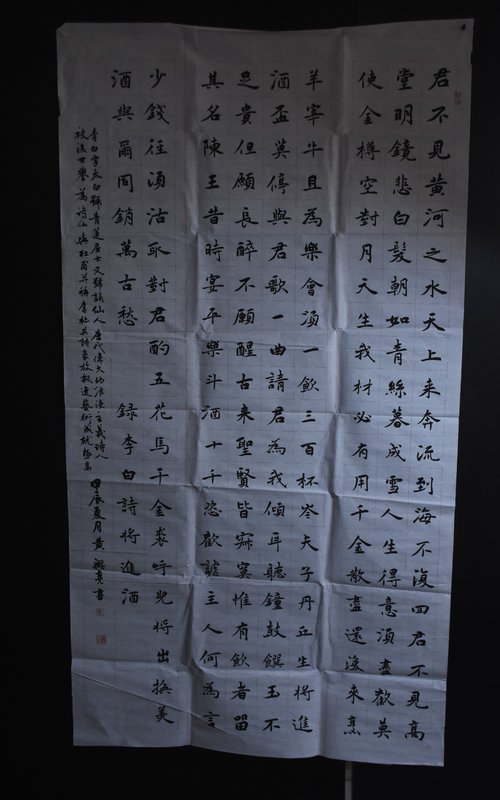 君不見黃河之水天上来奔流到海不復回君不見高
堂明鏡悲白髮朝如青絲暮成雪人生得意須盡歡莫
使金樽空對月天生我材必有用千金散盡還復来烹
羊宰牛且為樂會須一飲三百杯岑夫子丹丘生將進
酒盃莫停與君歌一曲請君為我傾耳聽鐘鼓饌玉不
足貴但願長醉不願醒古来聖賢皆寂寞惟有飲者留
其名陳王昔時宴平樂斗酒十千恣歡謔主人何為言
少錢徑須沽取對君酌五花馬千金裘呼兒將出換美
酒與爾同銷萬古愁 錄李白詩將進酒
李白字太白號青蓮居士又號謫仙人唐代偉大的浪漫主義詩人
被後世譽為詩仙與杜甫並稱李杜其詩豪放飄逸藝術成就極高 甲辰夏月黃興書